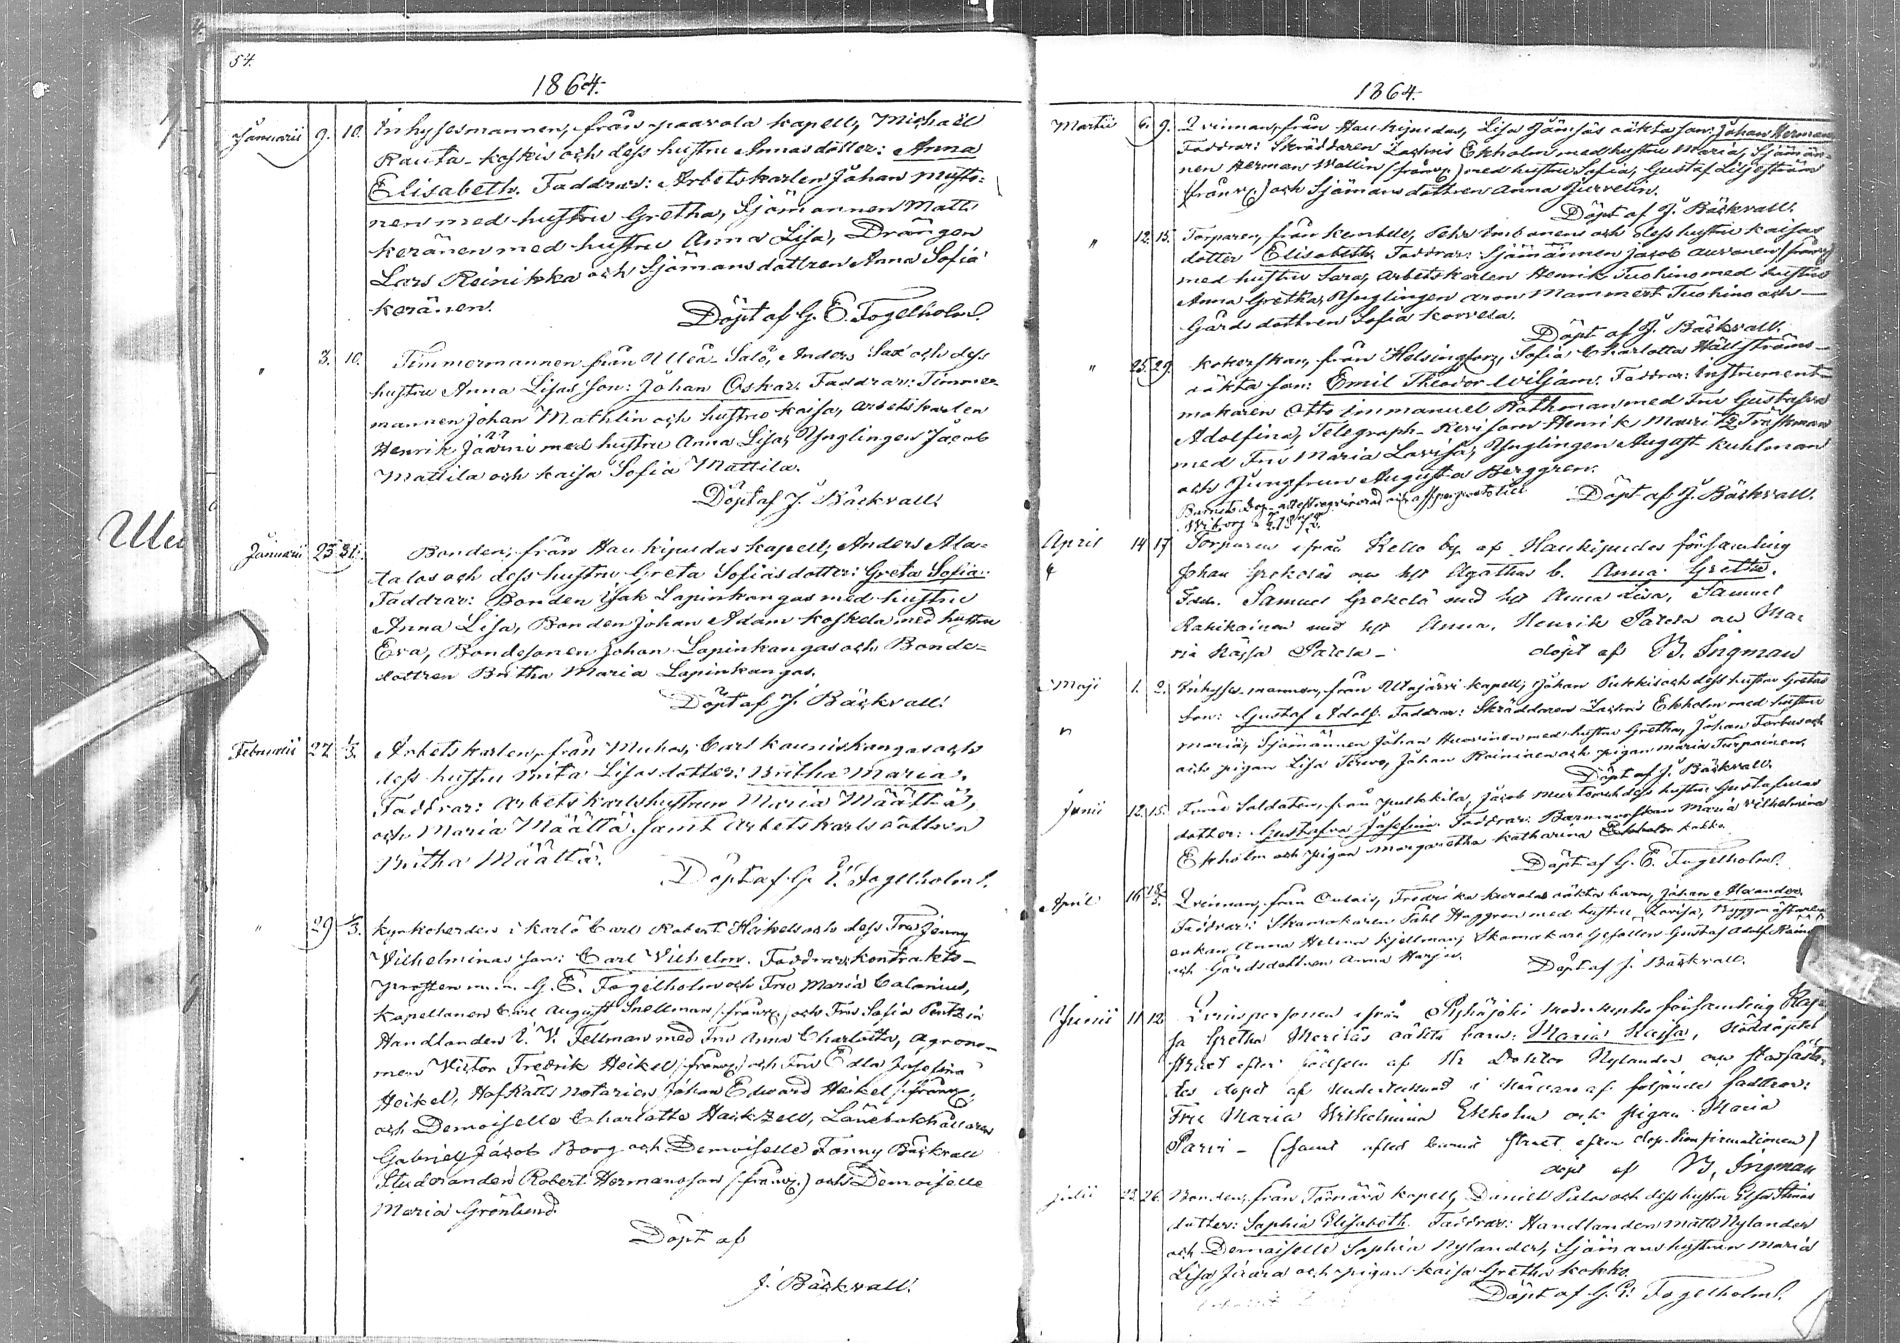 54.
1864.
Januarii 9. 10. Inhysesmannen, från Paavola kapell, Michaël
Rauta-koskis och dess hustru Annas dotter: Anna
Elisabeth. Faddrar: Arbetskarlen Johan Musto-
nen med hustru Gretha, Sjömannen Matts
Keränen med hustru Anna Lisa, Drängen
Lars Reinikka och Sjömansdottren Anna Sofia
Keränen.
Döpt af G. E. Fogelholm.
" 3. 10. Timmermannen från Uleå-Salo, Anders Sax och dess
hustru Anna Lisas son: Johan Oskar. Faddrar: Timmer-
mannen Johan Mathlin och hustru Kaisa, Arbetskarlen
Henrik Jäärni med hustru Anna Lisa, Ynglingen Jacob
Mattila och Kaisa Sofia Mattila.
Döpt af J. Bäckvall.
Uleå
Januarii 25 31. Bonden, från Haukipudas kapell, Anders Ala-
talos och dess hustru Greta Sofias dotter: Greta Sofia.
Faddrar: Bonden Isak Lapinkangas med hustru
Anna Lisa, Bonden Johan Adam Koskela med hustru
Eva, Bondesonen Johan Lapinkangas och Bonde-
dottren Britha Maria Lapinkangas.
Döpt af J. Bäckvall.
Februarii 27. 1/3. Arbetskarlen, från Muhos, Carl Kauniskangas och
dess hustru Brita Lisas dotter: Britha Maria.
Faddrar: Arbetskarlshustrun Maria Määttä,
och Maria Määttä samt Arbetskarlsdottren
Britha Määttä.
Döpt af G. E. Fogelholm.
" 29 1/3. Kyrkoherden i Karlö Carl Robert Heikels och dess Fru Jenny
Vilhelminas son: Carl Vilhelm. Faddrar: Kontrakts-
prosten m.m. G. E. Fogelholm och Fru Maria Calonius,
Kapellanen Carl August Snellman (frånv.) och Fru Sofia Pentzin
Handlanden C. W. Fellman med Fru Anna Charlotta, Agrono-
men Victor Fredrik Heikel (frånv.) och Fru Edla Josefina
Heikel, HofRätts Notarien Johan Edward Heikel (frånv.)
och Demoiselle Charlotta Hackzell, Länebokhållaren
Gabriel Jacob Borg och Demoiselle Fanny Bäckvall
Studeranden Robert Hermanson (frånv.) och Demoiselle
Maria Grönlund.
Döpt af
J. Bäckvall.
1864.
Martii 6. 9. Qvinnan, från Haukipudas, Lisa Jämsäs oäkta son: Johan Herman,
Faddrar: Skräddaren Zachris Ekholm med hustru Maria, Sjöman-
nen Herman Wallin (frånv.) med hustru Sofia, Gustaf Liljeström
(frånv.) och Sjömansdottren Anna Jurvelin.
Döpt af J. Bäckvall.
" 12. 15. Torparen, från Kempele, Pehr Imbonens och dess hustru Kaisas
dotter Elisabeth. Faddrar: Sjömannen Jacob Auvonen (frånv.)
med hustru Sara, Arbetskarlen Henrik Tuohino med hustru
Anna Gretha, Ynglingen Aron Mammert Tuohino och
Gårdsdottren Sofia Korvela.
Döpt af J. Bäckvall.
" 25. 29. Kokerskan, från Helsingfors, Sofia Charlotta Hällströms
oäkta son: Emil Theodor Wiljam. Faddrar: Instrument-
makaren Otto Immanuel Rothman med Fru Gustafva
Adolfina, Telegraph-Revisorn Henrik Mauritz Träskman
med Fru Maria Lovisa, Ynglingen August Kuhlman
och Jungfrun Augusta Berggren.
Döpt af J. Bäckvall.
April 14 17 Torparen ifrån Kello by af Haukipudas församling
Johan Grekeläs och hst Agathas b. Anna Gretha.
Fadd. Samuel Grekelä med hst Anna Lisa, Samuel
med hst Anna, Henrik Patela och Ma-
ria Kaisa Patela -
döpt af B. Ingman
Maji 1. 2. Inhysesmannen, från Utajärvi kapell, Johan Pukkis och dess hustru Gretas
son: Gustaf Adolf. Faddrar: Skräddaren Zachris Ekholm med hustru
Maria, Sjömannen Johan Huovinen med hustru Gretha, Johan Forbus och
och pigan Lisa Tervo, Johan Raininen och pigan Maria Turpainen.
Döpt af J. Bäckvall.
Junii 12. 15. Förre Soldaten, från Pulkkila, Jacob Murto och dess hustru Gustafvas
dotter: Gustafva Josefina. Faddrar: Barnmorskan Maria Vilhelmina
Ekholm och pigan Margaretha Katharina Kokko.
Döpt af G. E. Fogelholm.
April 16 Qvinnan, från Oulais, Fredrika oäkta barn, Johan Alexander.
Faddrar: Skomakaren Pahl Haggren med hustru Lovisa,
enkan Anna Helena Kjellman, Skomakare Gesällen Gustaf Adolf
och Gårdsdottren Anna Harju.
Döpt af J. Bäckvall.
Junii 11 12 Qvinspersonen ifrån Pyhäjoki moderkyrko församling Kaj-
sa Gretha Meriläs oäkta barn: Maria Kaisa, Nöddöpt
strax efter födseln af Hr Doktor Nylander och
döpt af undertecknad i närvaro af följande faddrar:
Fru Maria Wilhelmina Ekholm och pigan Maria
Parvi - (samt afled barnet strax efter dop-konfirmationen)
döpt af B. Ingman
Julii 23 26. Bonden, från Temmes kapell, Daniel Pulas och dess hustru Elsa Stinas
dotter: Sophia Elisabeth. Faddrar: Handlanden Matts Nylander
och Demoiselle Sophia Nylander, Sjömanshustrun Maria
Lisa Jäära och pigan Kaisa Gretha Kokko.
Döpt af G. E. Fogelholm.